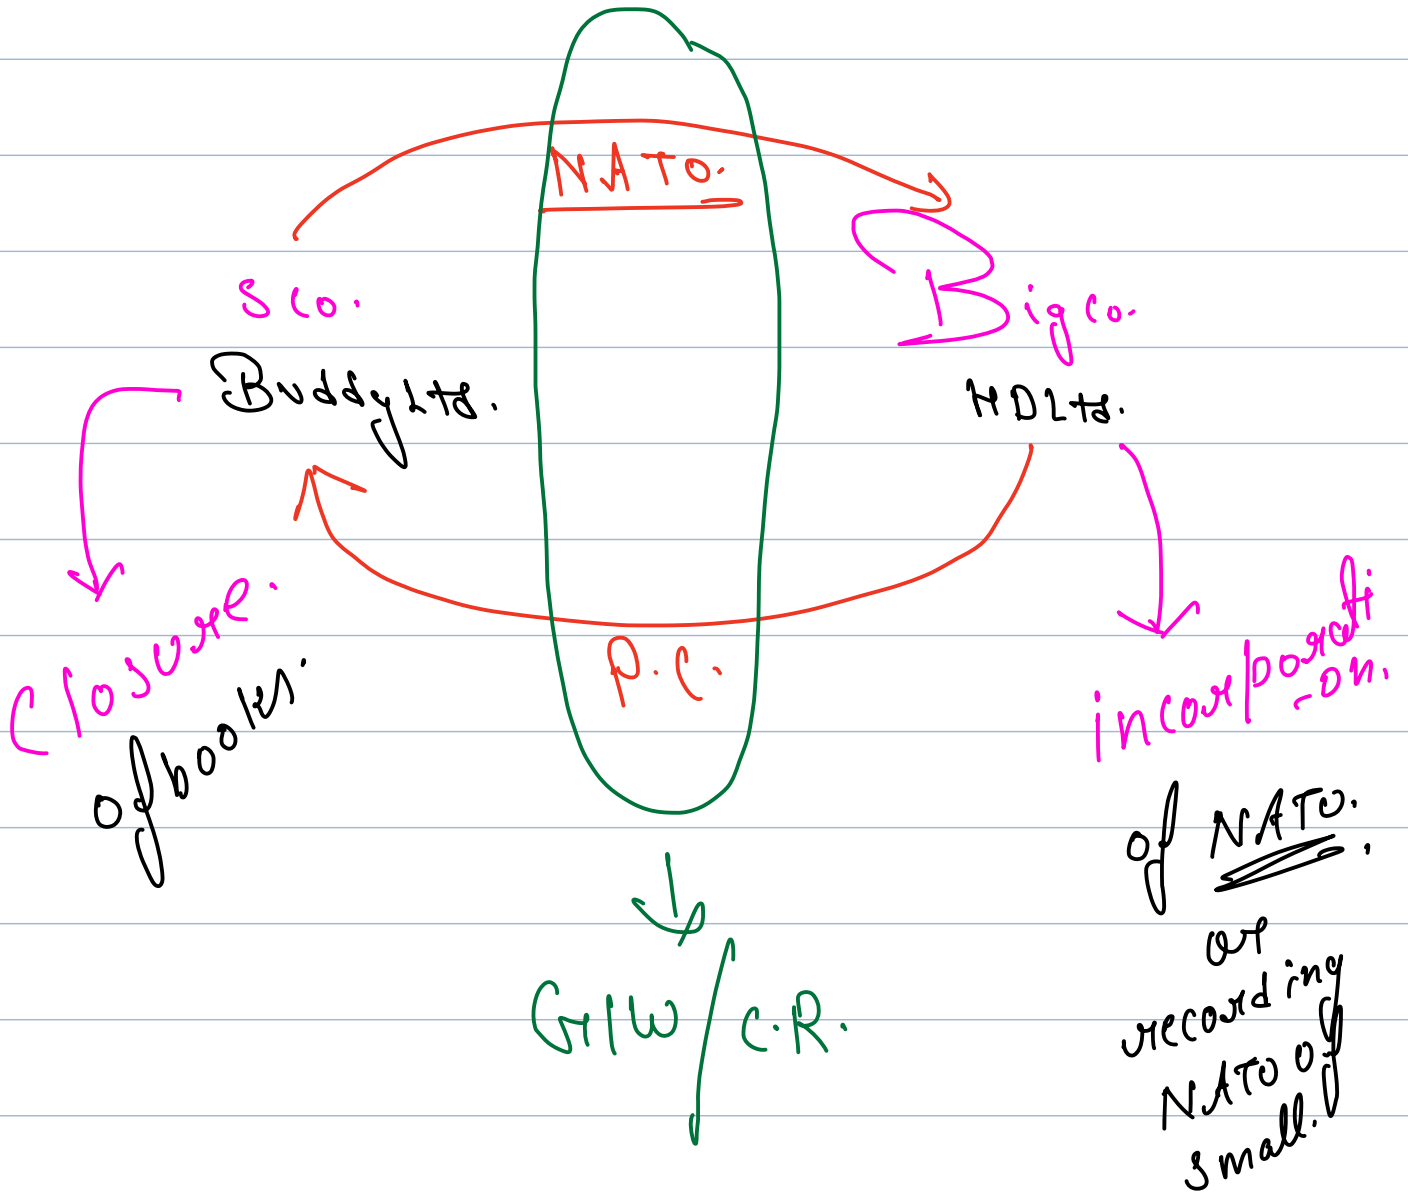 NATO.
Sco.
Bigco.
Buddy Ltd.
HD Ltd.
P.C.
Closure.
of books.
incorporati
-on.
of NATO.
or
recording
NATO of
small.
G/W / C.R.